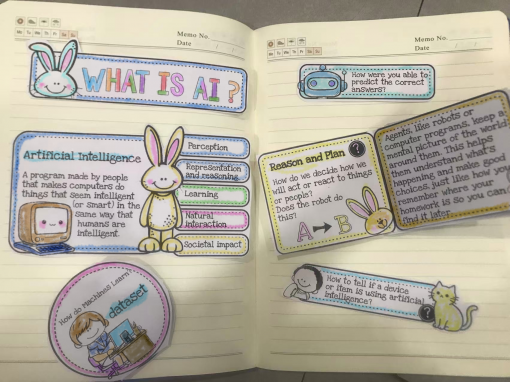 Memo No.
Mo Tu We Th Fr Sa Su
Date
WHAT IS AI?
Artificial Intelligence
A program made by people
that makes computers do
things that seem intelligent
(or smart) in the
same way that
humans are
intelligent.
Perception
Representation
and reasoning
Learning
Natural
interaction
Societal impact
How do Machines Learn?
dataset
Memo No.
Mo Tu We Th Fr Sa Su
Date
How were you able to
predict the correct
answers?
Reason and Plan ?
How do we decide how we
will act or react to things
or people?
Does the robot do
this?
A B
agents, like robots or
computer programs, keep a
mental picture of the world
around them. This helps
them understand what's
happening and make good
choices, just like how you
remember where your
homework is so you can
find it later.
How to tell if a device
or item is using artificial
intelligence?
?